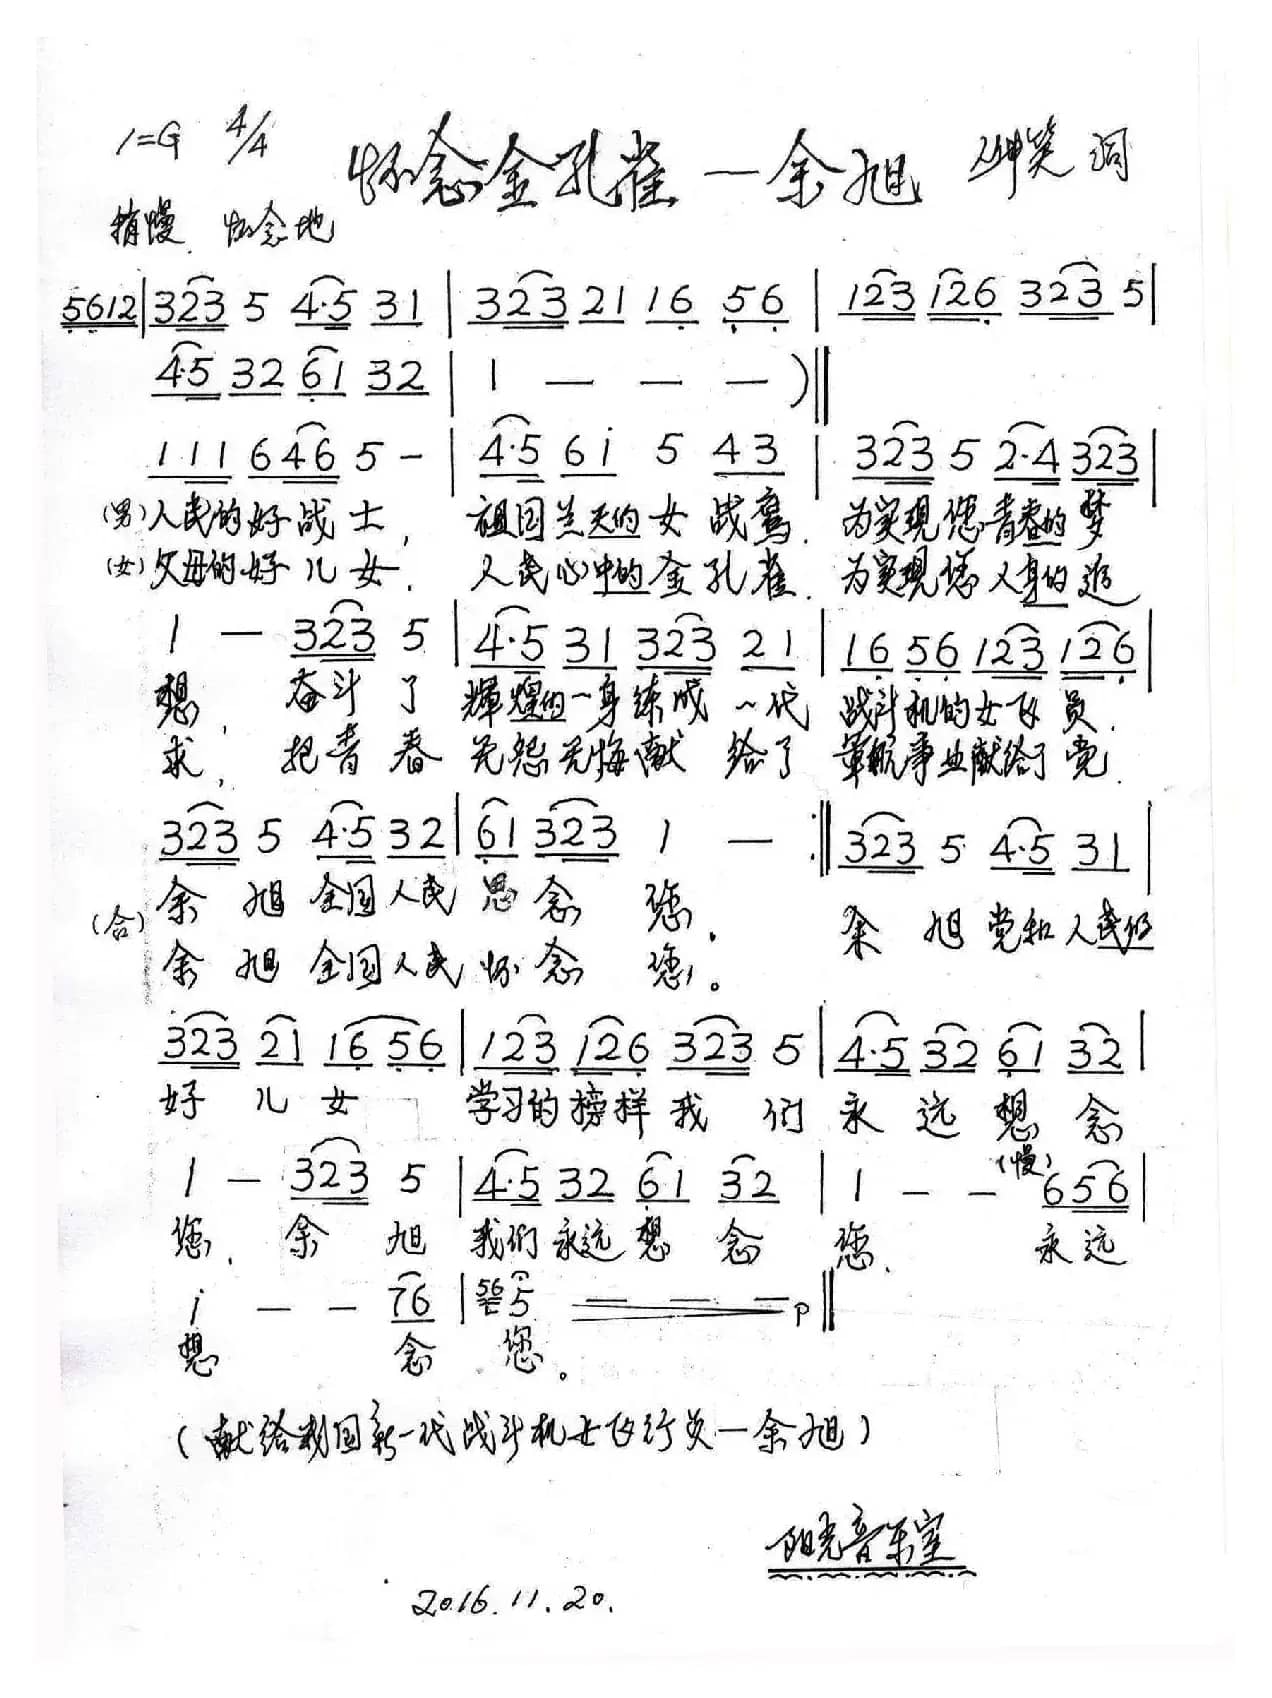 1=G 4/4
怀念金孔雀—余旭 笑 词
稍慢 怀念地
5612|323 5 4·5 31|323 21 16 56|123 126 323 5|
4·5 32 61 32|1 — — —)‖
111 646 5 —|4·5 61 5 43|323 5 2·4 323|
(男)人民的好战士, 祖国兰天的女战鹰. 为实现您青春的梦
(女)父母的好儿女. 人民心中的金孔雀. 为实现您人身的追
1 — 323 5|4·5 31 323 21|16 56 123 126|
想, 奋斗了 辉煌的一身练成一代 战斗机的女飞员.
求, 把青春 无怨无悔献给了 军航事业献给了党.
323 5 4·5 32|61 323 1 — :‖323 5 4·5 31|
(合)余旭全国人民思念您. 余旭党和人民仍
余旭全国人民怀念您。
323 21 16 56|123 126 323 5|4·5 32 61 32|
好儿女 学习的榜样我们永远想念
1 — 323 5|4·5 32 61 32|1 — — (慢) 656|
您. 余旭 我们永远想念您. 永远
i — — 76|56 5 — — — p‖
想 念 您。
(献给我国新一代战斗机女飞行员—余旭)
阳光音乐室
2016.11.20.